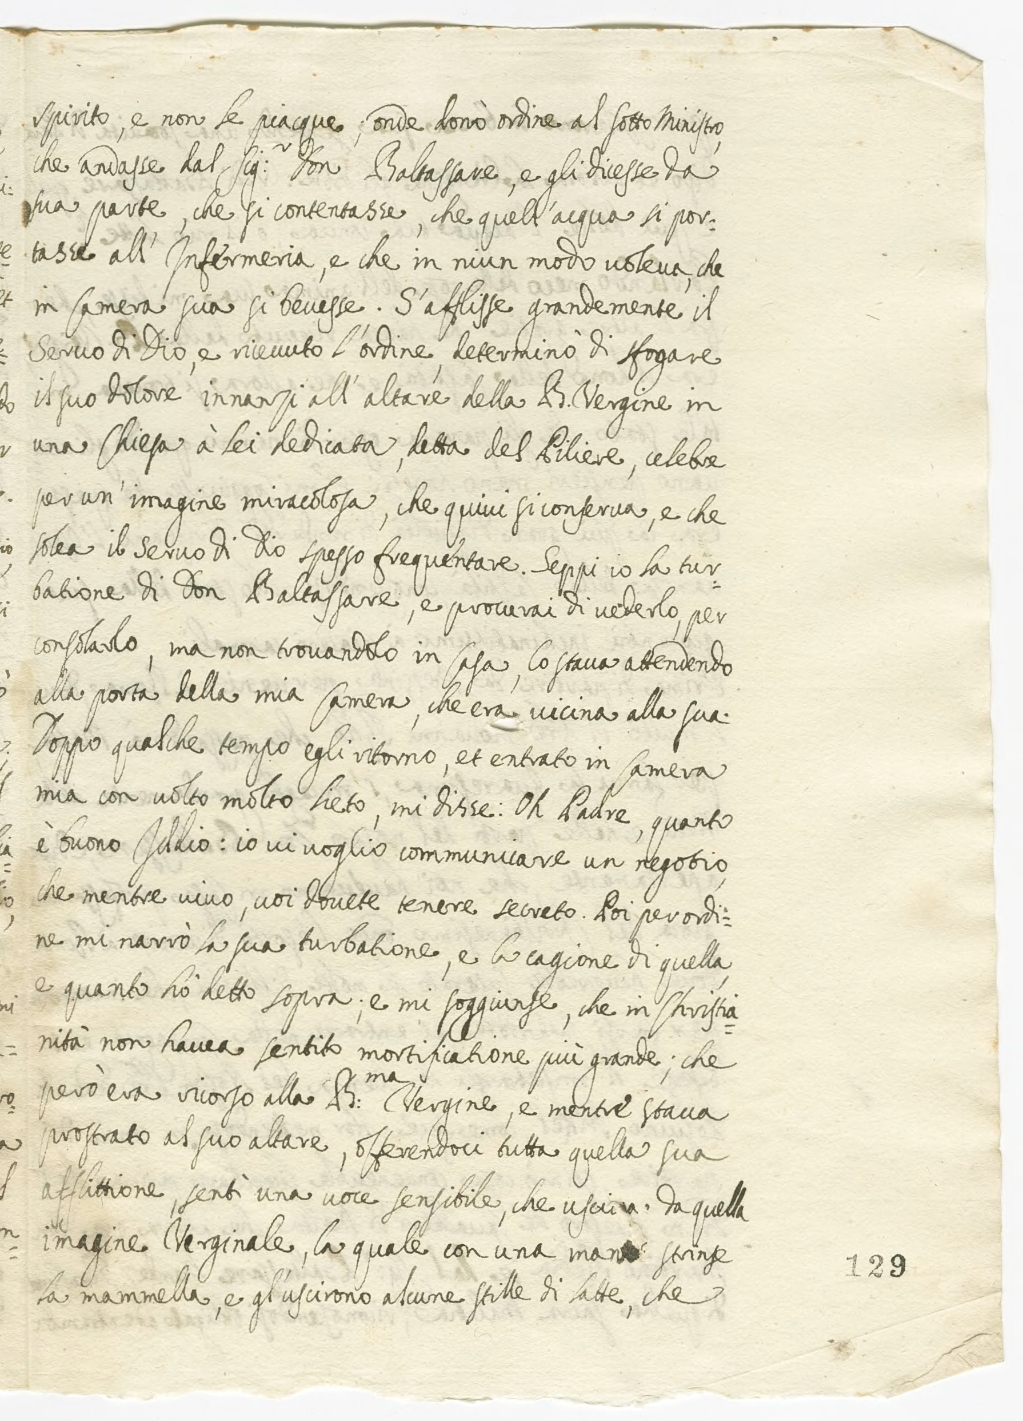 spirito, e non le piacque; onde donò ordine al sotto Ministro,
che andasse dal Sig:r Don Baltassare, e gli dicesse da
sua parte, che si contentasse, che quell'acqua si por=
tasse all'Infermeria, e che in niun modo voleva, che
in Camera sua si bevesse. S'afflisse grandemente il
Servo di Dio, e ricevuto l'ordine, determinò di sfogare
il suo dolore innanzi all'altare della B. Vergine in
una Chiesa à lei dedicata, detta del Piliere, celebre
per un'imagine miracolosa, che quivi si conserva, e che
solea il Servo di Dio spesso frequentare. Seppi io la tur=
batione di Don Baltassare, e procurai di vederlo, per
consolarlo, ma non trovandolo in Casa, lo stava attendendo
alla porta della mia Camera, che era vicina alla sua.
Doppo qualche tempo egli ritornò, et entrato in Camera
mia con volto molto lieto, mi disse: Oh Padre, quanto
è buono Iddio: io vi voglio communicare un negotio,
che mentre vivo, voi dovete tenere secreto. Poi per ordi=
ne mi narrò la sua turbatione, e la cagione di quella,
e quanto hò detto sopra; e mi soggiunse, che in Christia=
nità non havea sentito mortificatione più grande; che
però era ricorso alla B:ma Vergine, e mentre stava
prostrato al suo altare, offerendoci tutta quella sua
afflittione, sentì una voce sensibile, che usciva da quella
imagine Verginale, la quale con una mano strinse
la mammella, e gl'uscirono alcune stille di latte, che
129